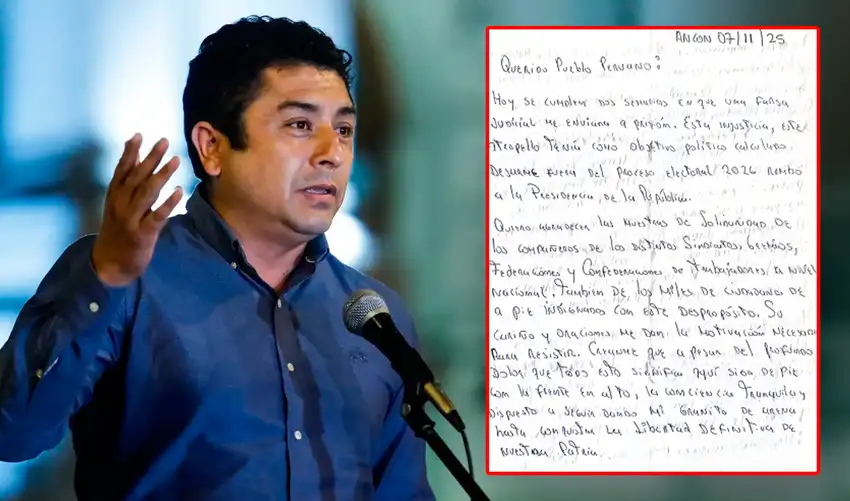 ANCON 07/11/25
QUERIDO PUEBLO PERUANO:
HOY SE CUMPLEN DOS SEMANAS EN QUE UNA FARSA
JUDICIAL ME ENVIARA A PRISIÓN. ESTA INJUSTICIA, ESTE
ATROPELLO TENÍA COMO OBJETIVO POLÍTICO CALCULADO.
DEJARME FUERA DEL PROCESO ELECTORAL 2026 RUMBO
A LA PRESIDENCIA DE LA REPÚBLICA.
QUIERO AGRADECER LAS MUESTRAS DE SOLIDARIDAD DE
LOS COMPAÑEROS DE LOS DISTINTOS SINDICATOS, GREMIOS,
FEDERACIONES Y CONFEDERACIONES DE TRABAJADORES A NIVEL
NACIONAL. TAMBIEN DE LOS MILES DE CIUDADANOS DE
A PIE INDIGNADOS CON ESTE DESPROPÓSITO. SU
CARIÑO Y ORACIONES ME DAN LA MOTIVACIÓN NECESARIA
PARA RESISTIR. CREANME QUE A PESAR DEL PROFUNDO
DOLOR QUE TODO ESTO SIGNIFICA AQUÍ SIGO DE PIE
CON LA FRENTE EN ALTO, LA CONCIENCIA TRANQUILA Y
DISPUESTO A SEGUIR DANDO MI GRANITO DE ARENA
HASTA CONQUISTAR LA LIBERTAD DEFINITIVA DE
NUESTRA PATRIA.